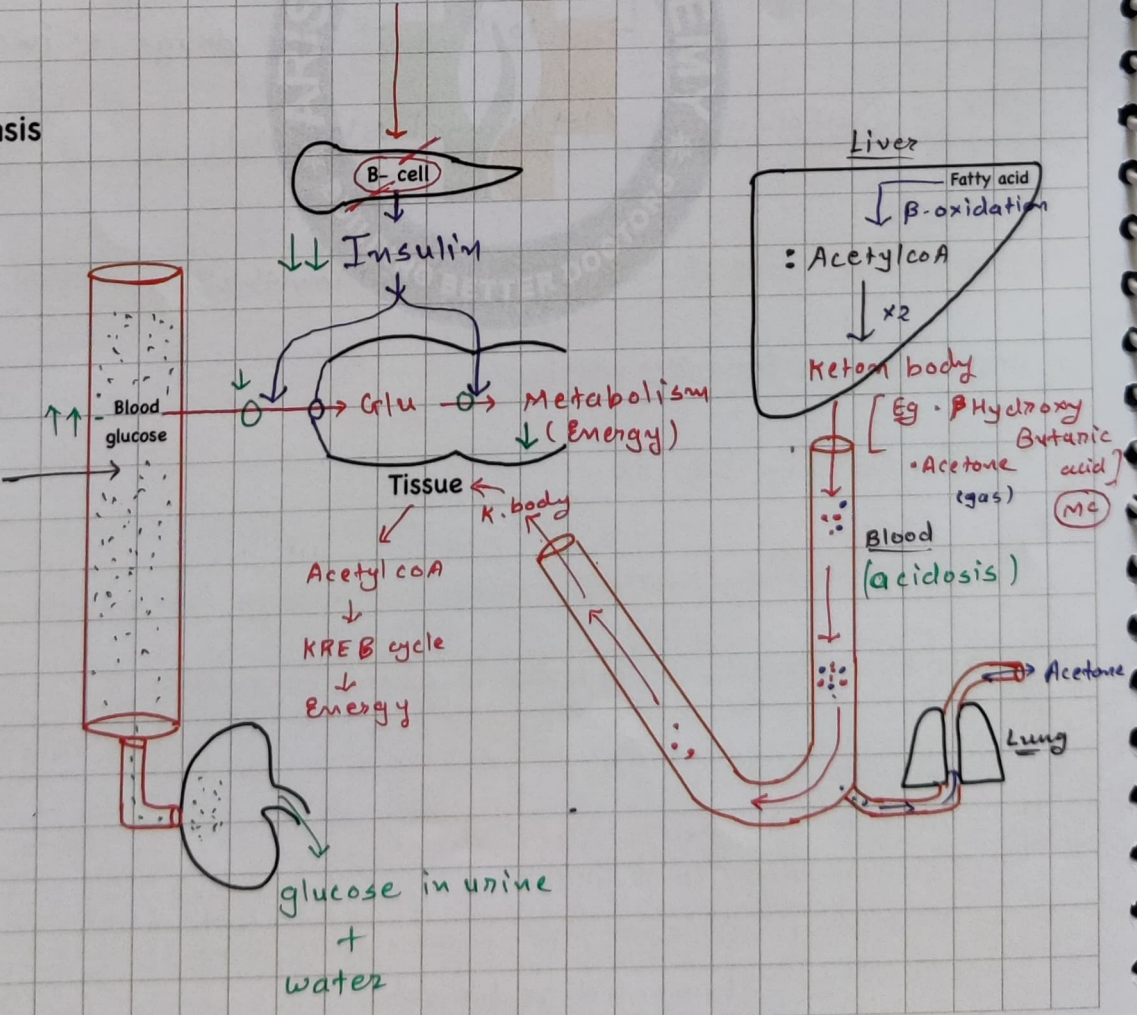 B- cell
Insulin
Blood
glucose
Glu
Metabolism
(Energy)
Tissue
K. body
Acetyl coA
KREB cycle
Energy
glucose in urine
+
water
Liver
Fatty acid
β-oxidation
: AcetylcoA
×2
Keton body
[Eg • βHydroxy
Butanic
acid]
• Acetone
(gas)
Blood
(acidosis)
Acetone
Lung
BETTER DOCTOR